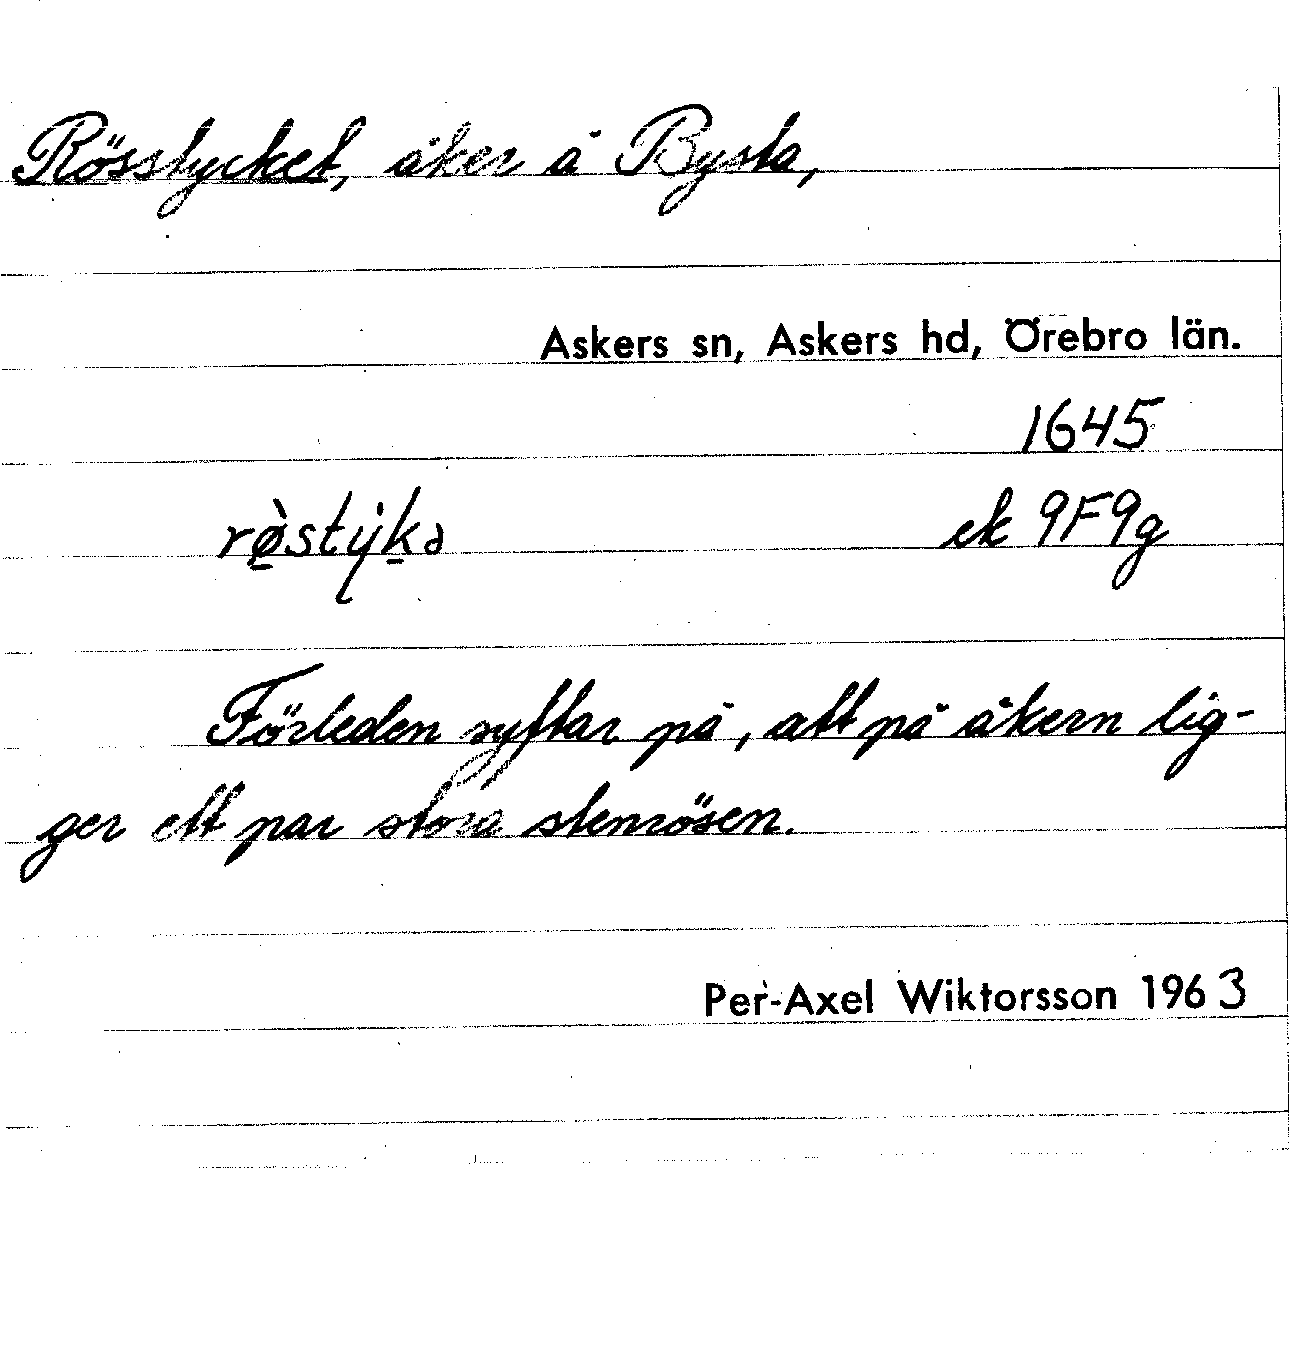 Rösstycket, åker å Bysta,
Askers sn, Askers hd, Örebro län.
1645
rø̀stýkə
ek 9F9g
Förleden syftar på, att på åkern lig-
ger ett par stora stenrösen.
Per-Axel Wiktorsson 1963